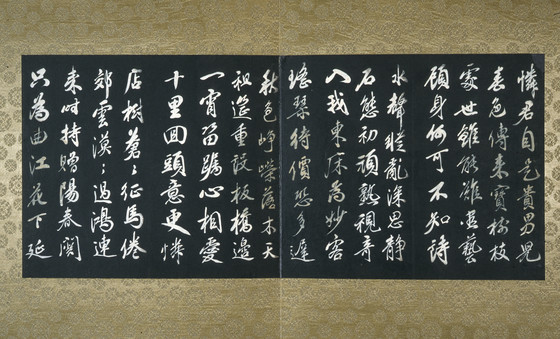 憐君自是貴男兒
春色傳来寶樹枝
處世雖能離藝
顧身何可不知詩
水聲聴亂深思静
石態初頑熟視奇
入我東床為妙客
瑤琴待價恐多遲
秋色崢嶸落木天
祖筵重設板橋邊
一宵留心相愛
十里回頭意更憐
店樹蒼〻征馬倦
郊雲漠〻過鴻連
来時持贈陽春闋
只為曲江花下延